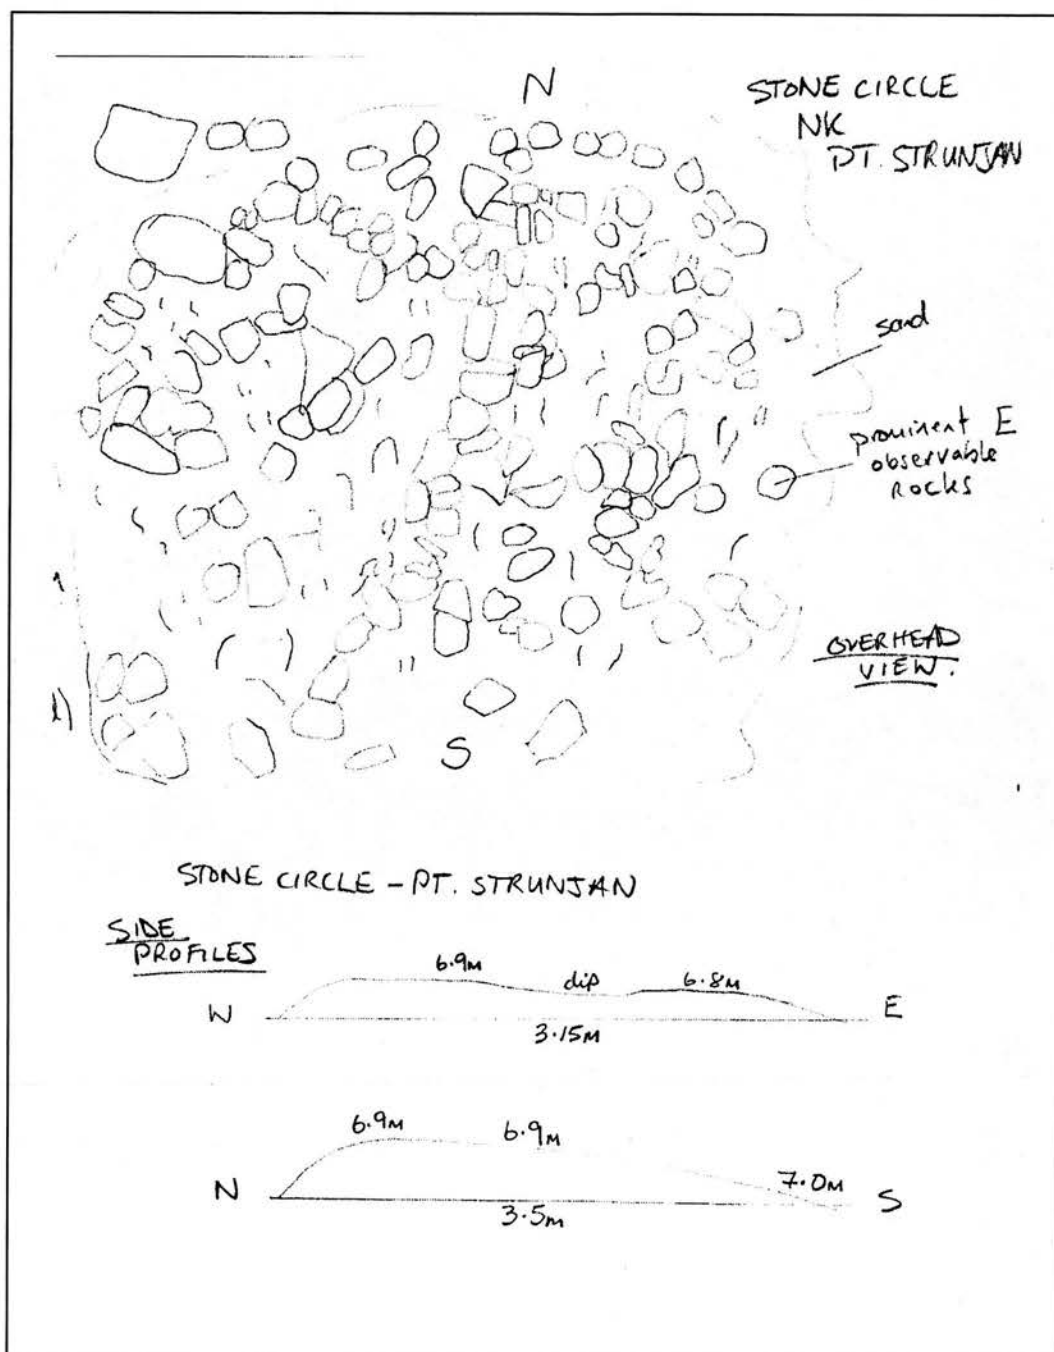 N
STONE CIRCLE
NK
PT. STRUNJAN
sand
prominent E
observable
ROCKS
OVERHEAD
VIEW.
S
STONE CIRCLE - PT. STRUNJAN
SIDE
PROFILES
6.9M
dip
6.8M
W
E
3.15M
6.9M
6.9M
7.0M
N
S
3.5m